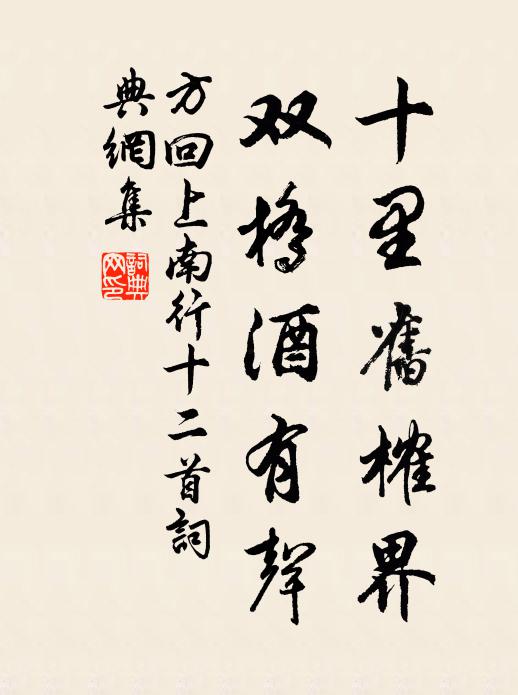 十里舊榷界
双橋酒有聲
方回上南行十二首詞
典網集
詞典網印